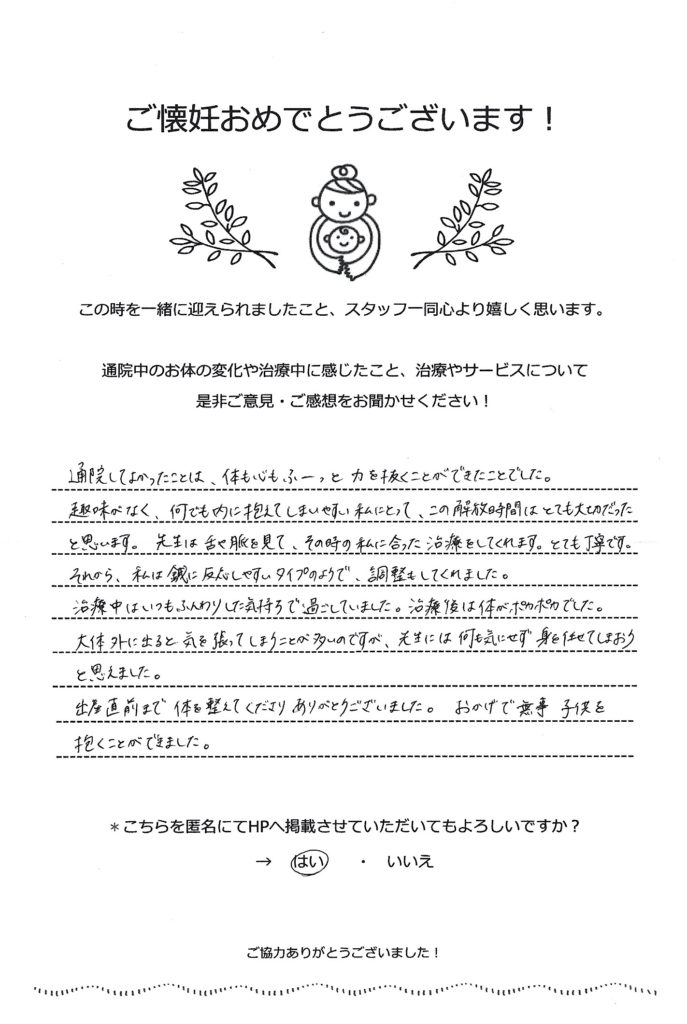 ご懐妊おめでとうございます！
この時を一緒に迎えられましたこと、スタッフ一同心より嬉しく思います。
通院中のお体の変化や治療中に感じたこと、治療やサービスについて
是非ご意見・ご感想をお聞かせください！
通院してよかったことは、体も心もふーっと力を抜くことができたことでした。
趣味がなく、何でも内に抱えてしまいやすい私にとって、この解放時間はとても大切だった
と思います。先生は舌や脈を見て、その時の私に合った治療をしてくれます。とても丁寧です。
それから、私は鍼に反応しやすいタイプのようで、調整もしてくれました。
治療中はいつもふんわりした気持ちで過ごしていました。治療後は体がポカポカでした。
大体外に出ると気を張ってしまうことが多いのですが、先生には何も気にせず身を任せてしまおう
と思えました。
出産直前まで体を整えてくださりありがとうございました。おかげで無事子供を
抱くことができました。
＊こちらを匿名にてHPへ掲載させていただいてもよろしいですか？
→ はい ・ いいえ
ご協力ありがとうございました！